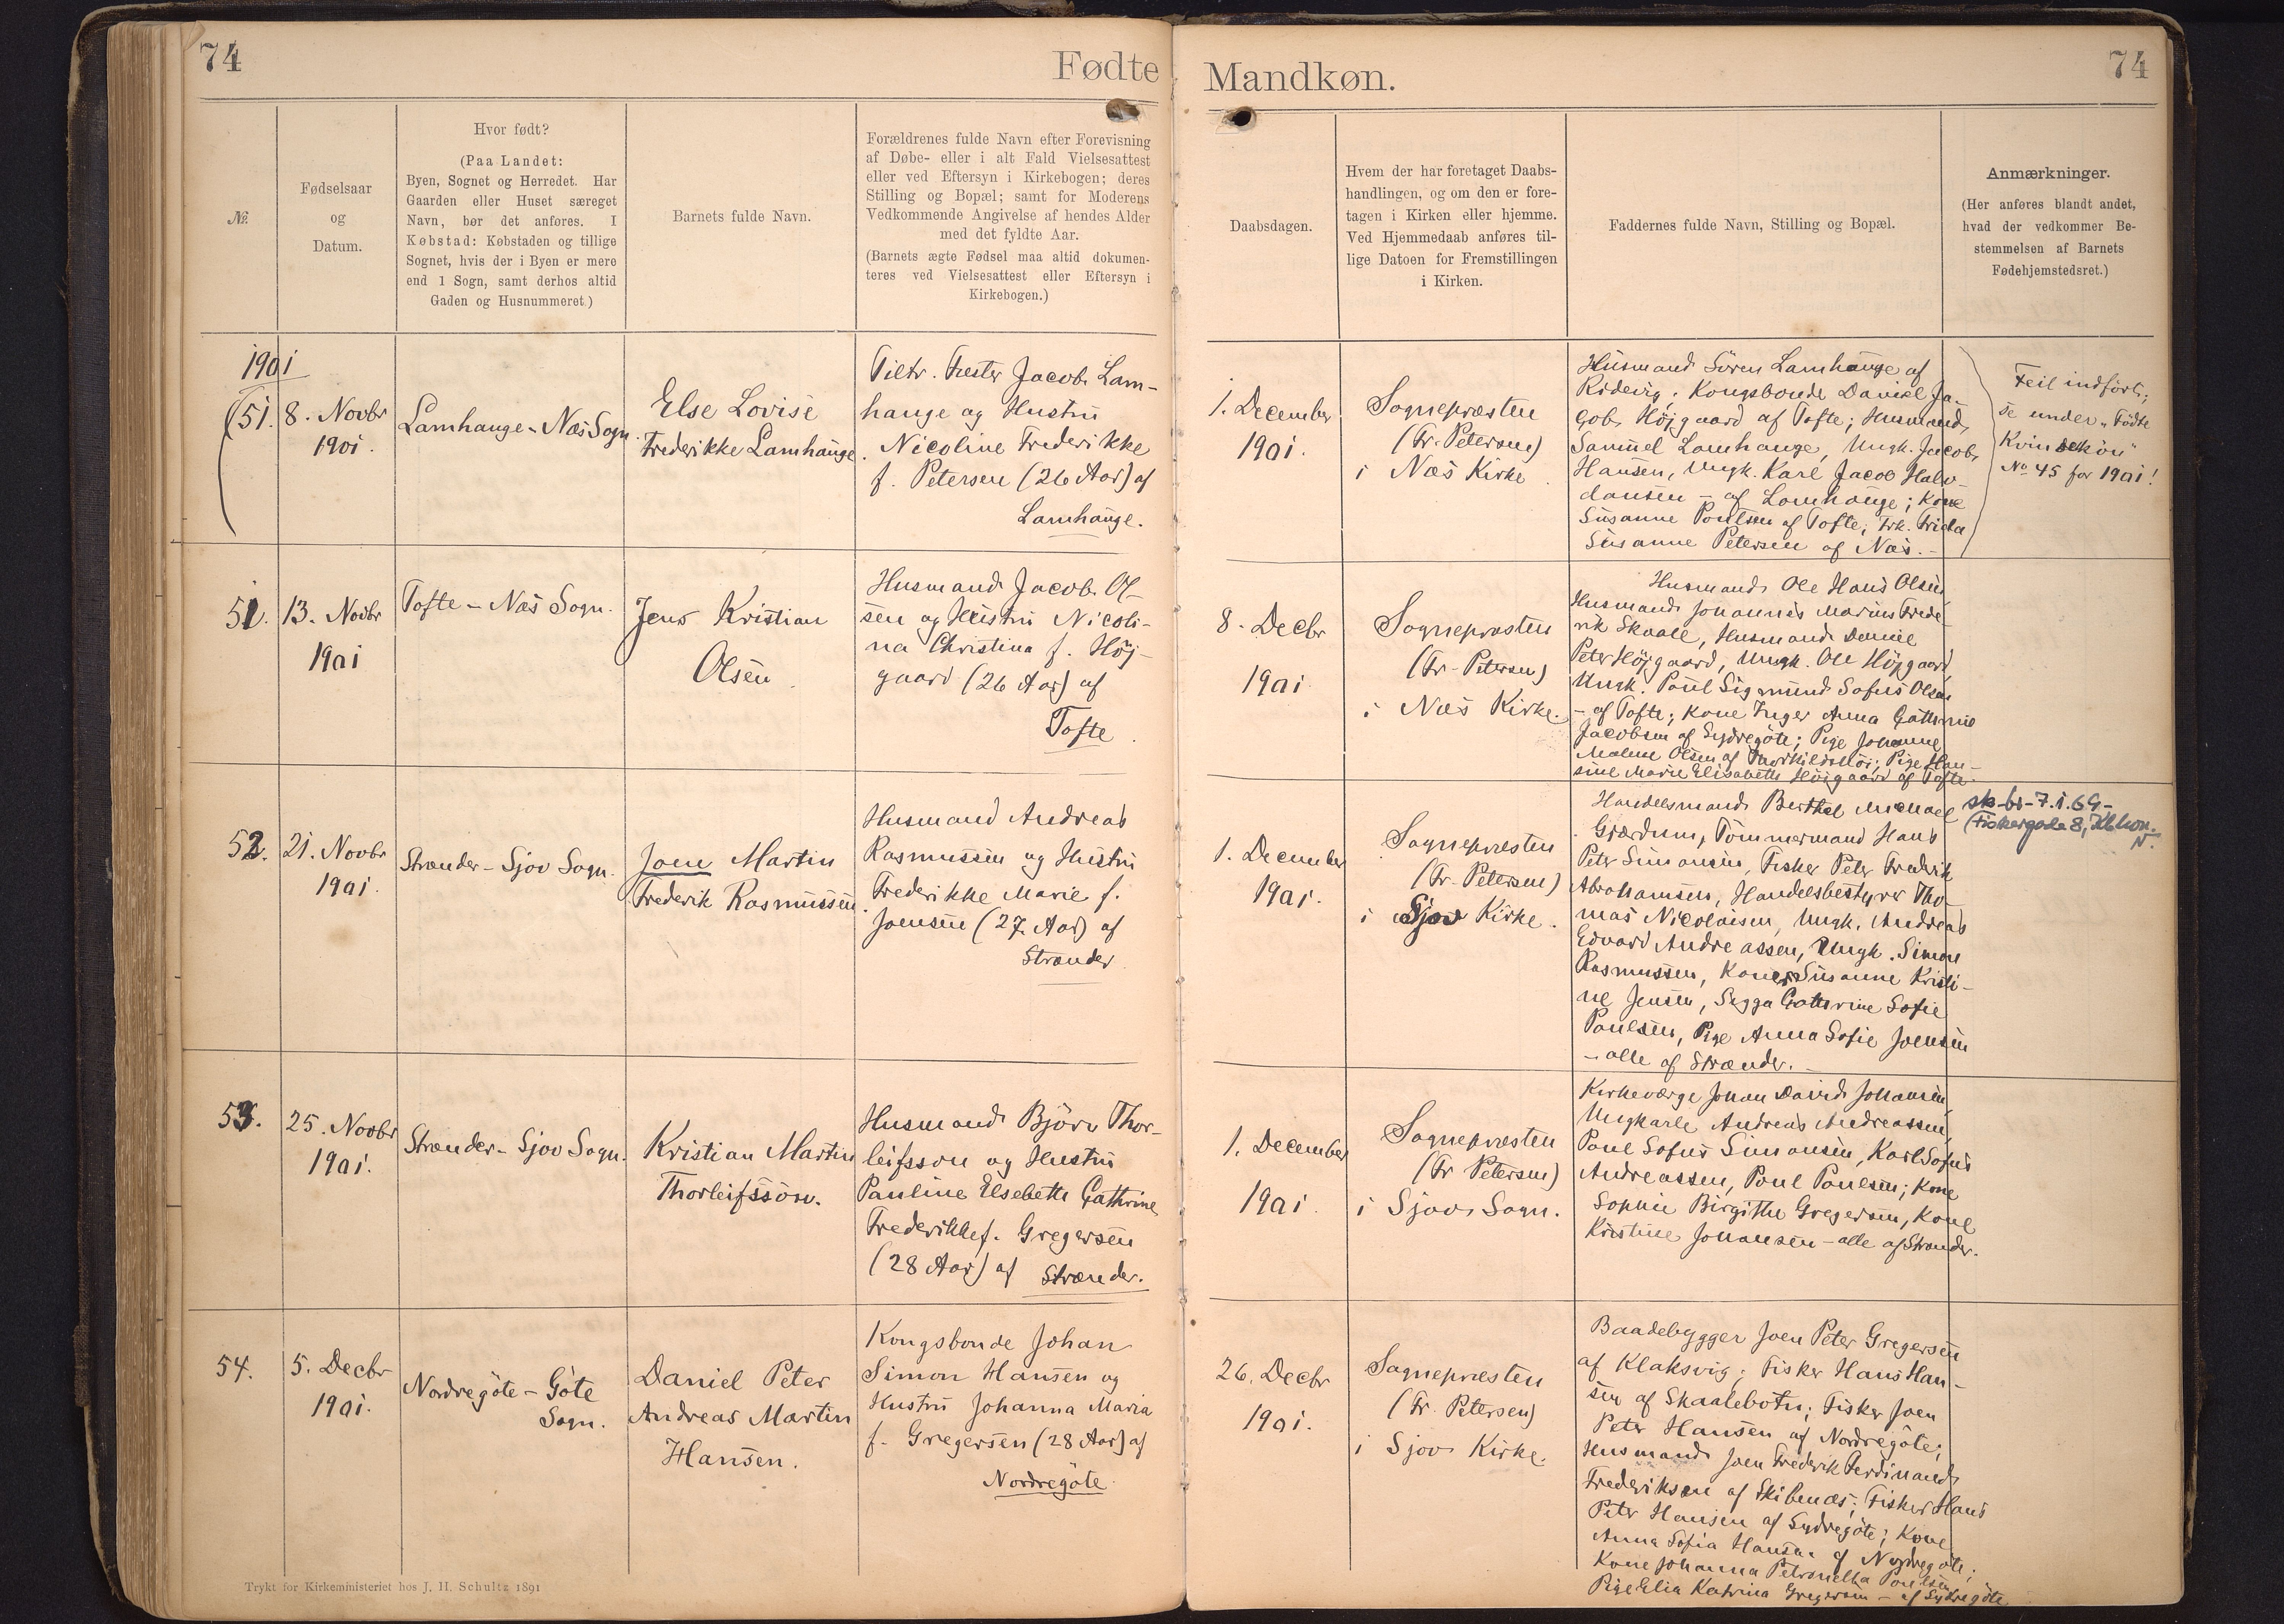 74
Fødte
Mandkøn.
74
№.
Fødselsaar
og
Datum.
Hvor født?
(Paa Landet:
Byen, Sognet og Herredet. Har
Gaarden eller Huset særeget
Navn, bør det anføres. I
Købstad: Købstaden og tillige
Sognet, hvis der i Byen er mere
end 1 Sogn, samt derhos altid
Gaden og Husnummeret.)
Barnets fulde Navn.
Forældrenes fulde Navn efter Forevisning
af Døbe- eller i alt Fald Vielsesattest
eller ved Eftersyn i Kirkebogen; deres
Stilling og Bopæl; samt for Moderens
Vedkommende Angivelse af hendes Alder
med det fyldte Aar.
(Barnets ægte Fødsel maa altid dokumen-
teres ved Vielsesattest eller Eftersyn i
Kirkebogen.)
Daabsdagen.
Hvem der har foretaget Daabs-
handlingen, og om den er fore-
tagen i Kirken eller hjemme.
Ved Hjemmedaab anføres til-
lige Datoen for Fremstillingen
i Kirken.
Faddernes fulde Navn, Stilling og Bopæl.
Anmærkninger.
(Her anføres blandt andet,
hvad der vedkommer Be-
stemmelsen af Barnets
Fødehjemstedsret.)
1901
(51.
8. Novbr
1901.
Lamhauge - Næs Sogn.
Else Lovise
Frederikke Lamhauge
Fæster Jacob Lam-
hauge og Hustru
Nicoline Frederikke
f. Petersen (26 Aar) af
Lamhauge.
1. December
1901.
Sognepræsten
(Fr. Petersen)
i Næs Kirke
Husmand Sören Lamhauge af
Ridevig; Kongsbonde Daniel Ja-
cob Höjgaard af Tofte; Husmand
Samuel Lamhauge, Ungk. Jacob
Hansen, Ungk. Karl Jacob Halv-
dansen - af Lamhauge; Kone
Susanne Poulsen af Tofte; Frk. Frida
Susanne Petersen af Næs. -
Feil indført;
se under "Födte
Kvindekön"
No 45 for 1901!
51.
13. Novbr
1901
Tofte - Næs Sogn.
Jens Kristian
Olsen
Husmand Jacob Ol-
sen og Hustru Nicoli-
na Christina f. Höj-
gaard (26 Aar) af
Tofte
8. Decbr
1901
Sognepræsten
(Fr. Petersen)
i Næs Kirke.
Husmand Ole Hans Olsen
Husmand Johannes Marius Frede-
rik Skaale, Husmand Daniel
Peter Höjgaard, Ungk. Ole Höjgaard,
Ungk. Poul Sigmund Sofus Olsen
- af Tofte; Kone Inger Anna Cathrine
Jacobsen af Sydregöte; Pige Johanne
Malene Olsen af; Pige Han-
sine Marie Elisabeth Höjgaard af Tofte.
52.
21. Novbr
1901.
Strænder - Sjov Sogn.
Joen Martin
Frederik Rasmussen
Husmand Andreas
Rasmussen og Hustru
Frederikke Marie f.
Joensen (27 Aar) af
Strænder
1. December
1901.
Sognepræsten
(Fr. Petersen)
i Sjov Kirke.
Handelsmand Berthel Michael
Grærdum, Tömmermand Hans
Peter Simonsen, Fisker Peter Frederik
Abrahamsen, Handelsbestyrer Tho-
mas Nicolaisen, Ungk. Andreas
Edvard Andreassen, Ungk. Simon
Rasmussen, Koner Susanne Kristi-
ne Jensen, Segga Cathrine Sofie
Poulsen, Pige Anna Sofie Joensen
- alle af Strænder. -
sk-br-7.1.69-
(Fiskergade 8, Kbhvn.
N.
53.
25. Novbr
1901.
Strænder - Sjov Sogn.
Kristian Martin
Thorleifsson.
Husmand Björn Thor-
leifsson og Hustru
Pauline Elsebeth Cathrine
Frederikke f. Gregersen
(28 Aar) af Strænder.
1. December
1901.
Sognepræsten
(Fr Petersen)
i Sjov Sogn.
Kirkeværge Johan David Johansen,
Ungkarle Andreas Andreassen,
Poul Sofus Simonsen, Karl Sofus
Andreassen, Poul Poulsen; Kone
Sophie Birgithe Gregersen, Kone
Kristine Johansen - alle af Strænder.
54.
5. Decbr
1901.
Nordregöte - Göte
Sogn.
Daniel Peter
Andreas Martin
Hansen.
Kongsbonde Johan
Simon Hansen og
Hustru Johanna Maria
f. Gregersen (28 Aar) af
Nordregöte
26. Decbr
1901.
Sognepræsten
(Fr. Petersen)
i Sjov Kirke.
Baadebygger Joen Peter Gregersen
af Klaksvig; Fisker Hans Han-
sen af Skaalebotn; Fisker Joen
Peter Hansen af Nordregöte;
Husmand Joen Frederik Ferdinand
Frederiksen af Skibenæs; Fisker Hans
Peter Hansen af Sydregöte; Kone
Anna Sofia Hansen af Nordregöte;
Kone Johanna Petronella Poulsen
Pige Elia Katrina Gregersen - af Sydregöte
Trykt for Kirkeministeriet hos J. H. Schultz 1891